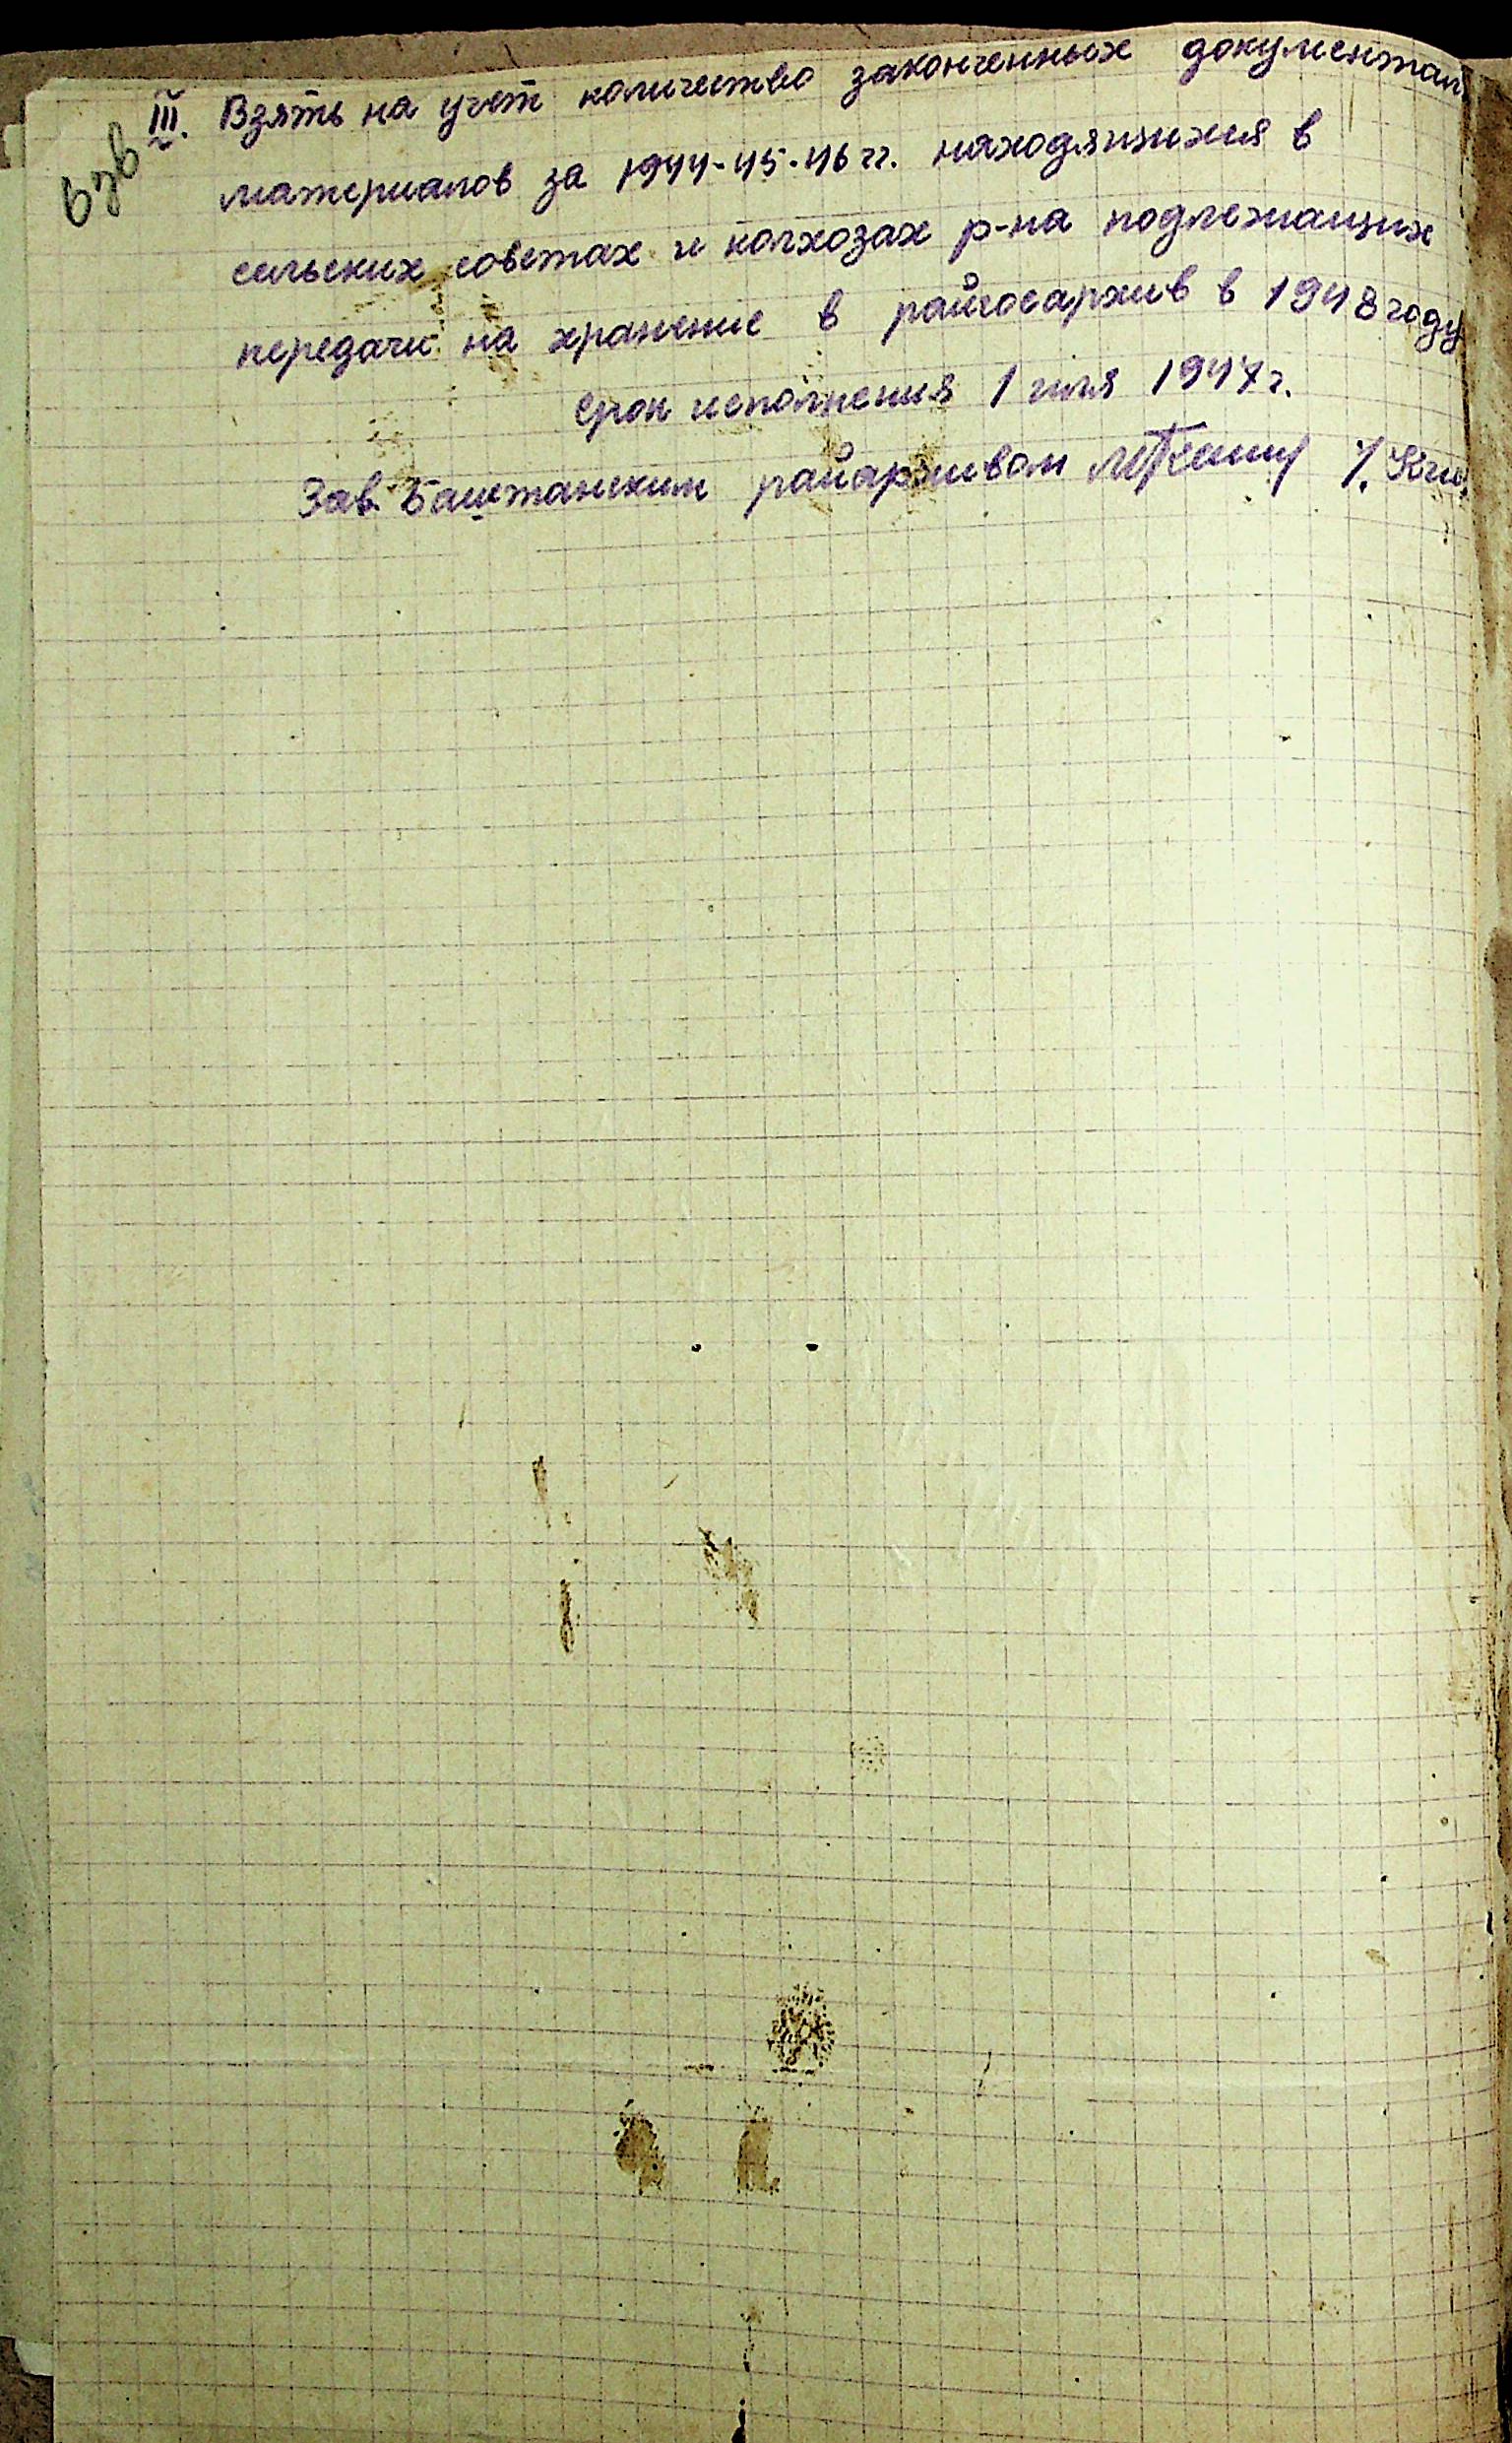 6 зв
III. Взять на учет количество законченных документал
материалов за 1944-45-46 гг. находящихся в
сельских советах и колхозах р-на подлежащих
передачи на хранение в райгосархив в 1948 году
Срок исполнения 1 1947 г.
Зав. Баштанским райархивом